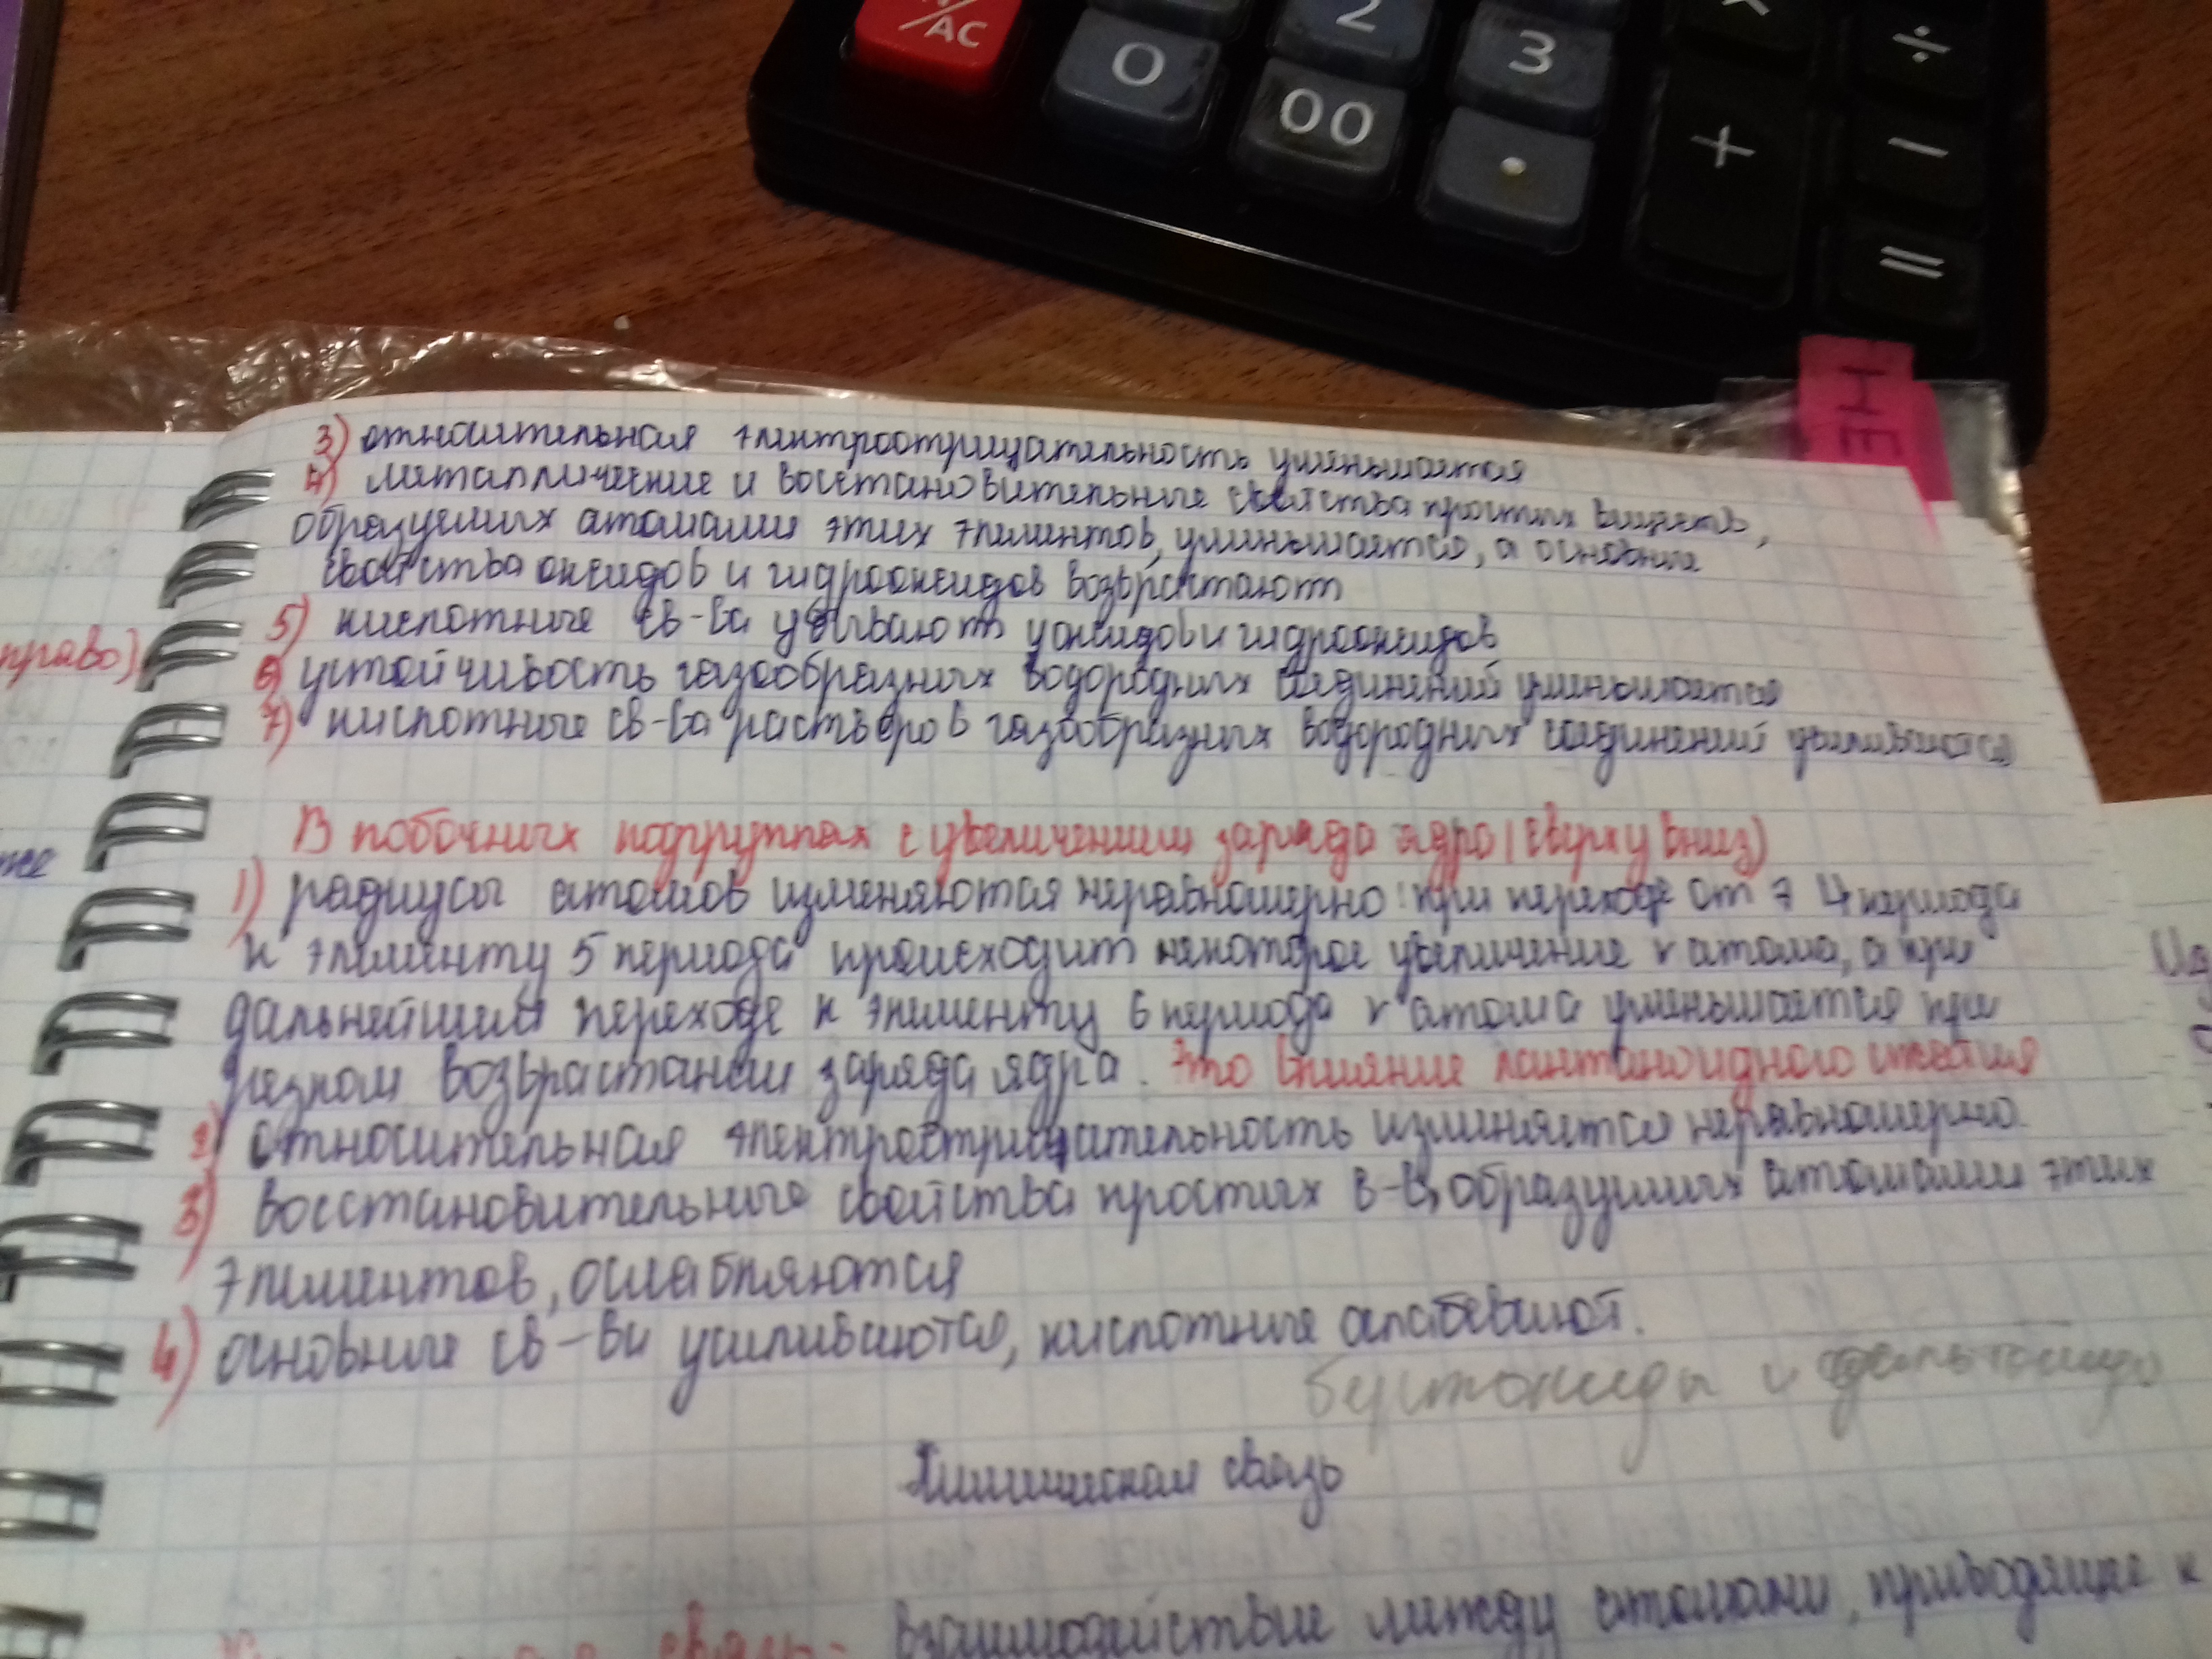 AC
0
2
3
÷
00
.
+
−
=
НЕ
3) относительная электроотрицательность уменьшается
4) металлические и восстановительные свойства простых веществ,
образуемых атомами этих элементов, уменьшается, а основные
свойства оксидов и гидрооксидов возврастают
5) кислотные св-ва убывают у оксидов и гидрооксидов
6) устойчивость газообразных водородных соединений уменьшается
7) кислотные св-ва растворов газообразных водородных соединений усиливаются
право)
В побочных подгруппах с увеличением заряда ядра (сверху вниз)
1) радиусы атомов изменяются неравномерно: при переходе от э 4 периода
к элементу 5 периода происходит некоторое увеличение r атома, а при
дальнейшем переходе к элементу 6 периода r атома уменьшается при
резком возврастании заряда ядра. Это влияние лантаноидного сжатия
2) относительная электроотрицательность изменяется неравномерно.
3) восстановительные свойства простых в-в, образуемых атомами этих
элементов, ослабляются
4) основные св-ва усиливаются, кислотные ослабевают.
бертолиды и дальтониды
Химическая связь
связь - взаимодействие между атомами, приводящее к